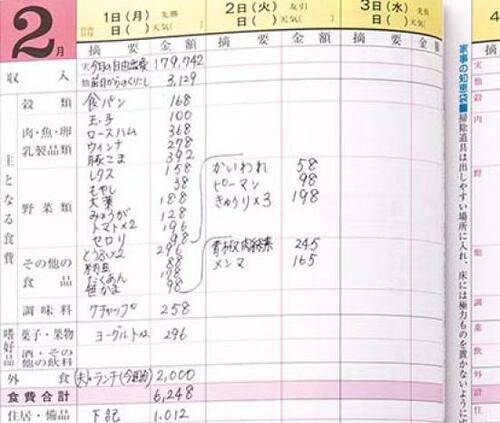 2月
1日(月) 先勝
日( ) 天気( )
2日(火) 友引
日( ) 天気( )
3日(水) 先負
日( ) 天気( )
摘要 金額 摘要 金額 摘要 金額
収入 今月の自由出費 179,742
前日からのくりこし 3,129
主となる食費
穀類 食パン 168
肉・魚・卵 玉子 100
乳製品類 ロースハム 368
ウィンナ 278
豚こま 392
野菜類 レタス 158 かいわれ 58
もやし 38 ピーマン 98
大葉 188 きゅうり×3 198
みょうが 128
トマト×2 196
セロリ 98
その他の食品 とうふ×2 296 青椒肉絲素 245
88 メンマ 165
たくあん 198
笹かま 98
調味料 ケチャップ 258
嗜好品
菓子・果物 ヨーグルト×2 296
酒・その他の飲料
外食 2,000
食費合計 6,248
住居・備品 下記 1,012
家事の知恵袋■掃除道具は出しやすい場所に入れ、床には極力ものを置かないように